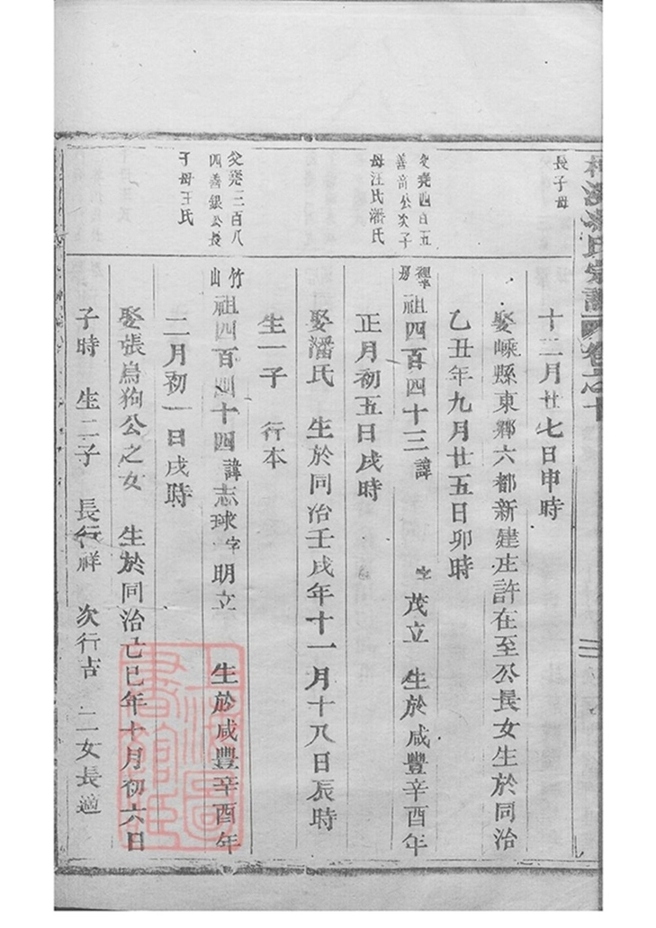 氏宗譜 卷之十
長子母
十二月廿七日申時
娶嵊縣東鄉六都新建庄許在至公長女生於同治
乙丑年九月廿五日卯時
父堯四百五
善 公次子
母汪氏潘氏
祖四百四十三 諱 字 茂立 生於咸豐辛酉年
正月初五日戌時
娶潘氏 生於同治壬戌年十一月十八日辰時
生一子 行本
父堯三百八
四善銀公長
子母王氏
竹山
祖四百四十四 諱志球 字明立 生於咸豐辛酉年
二月初一日戌時
娶張烏狗公之女 生於同治己巳年十月初六日
子時 生二子 長行祥 次行吉 二女長適